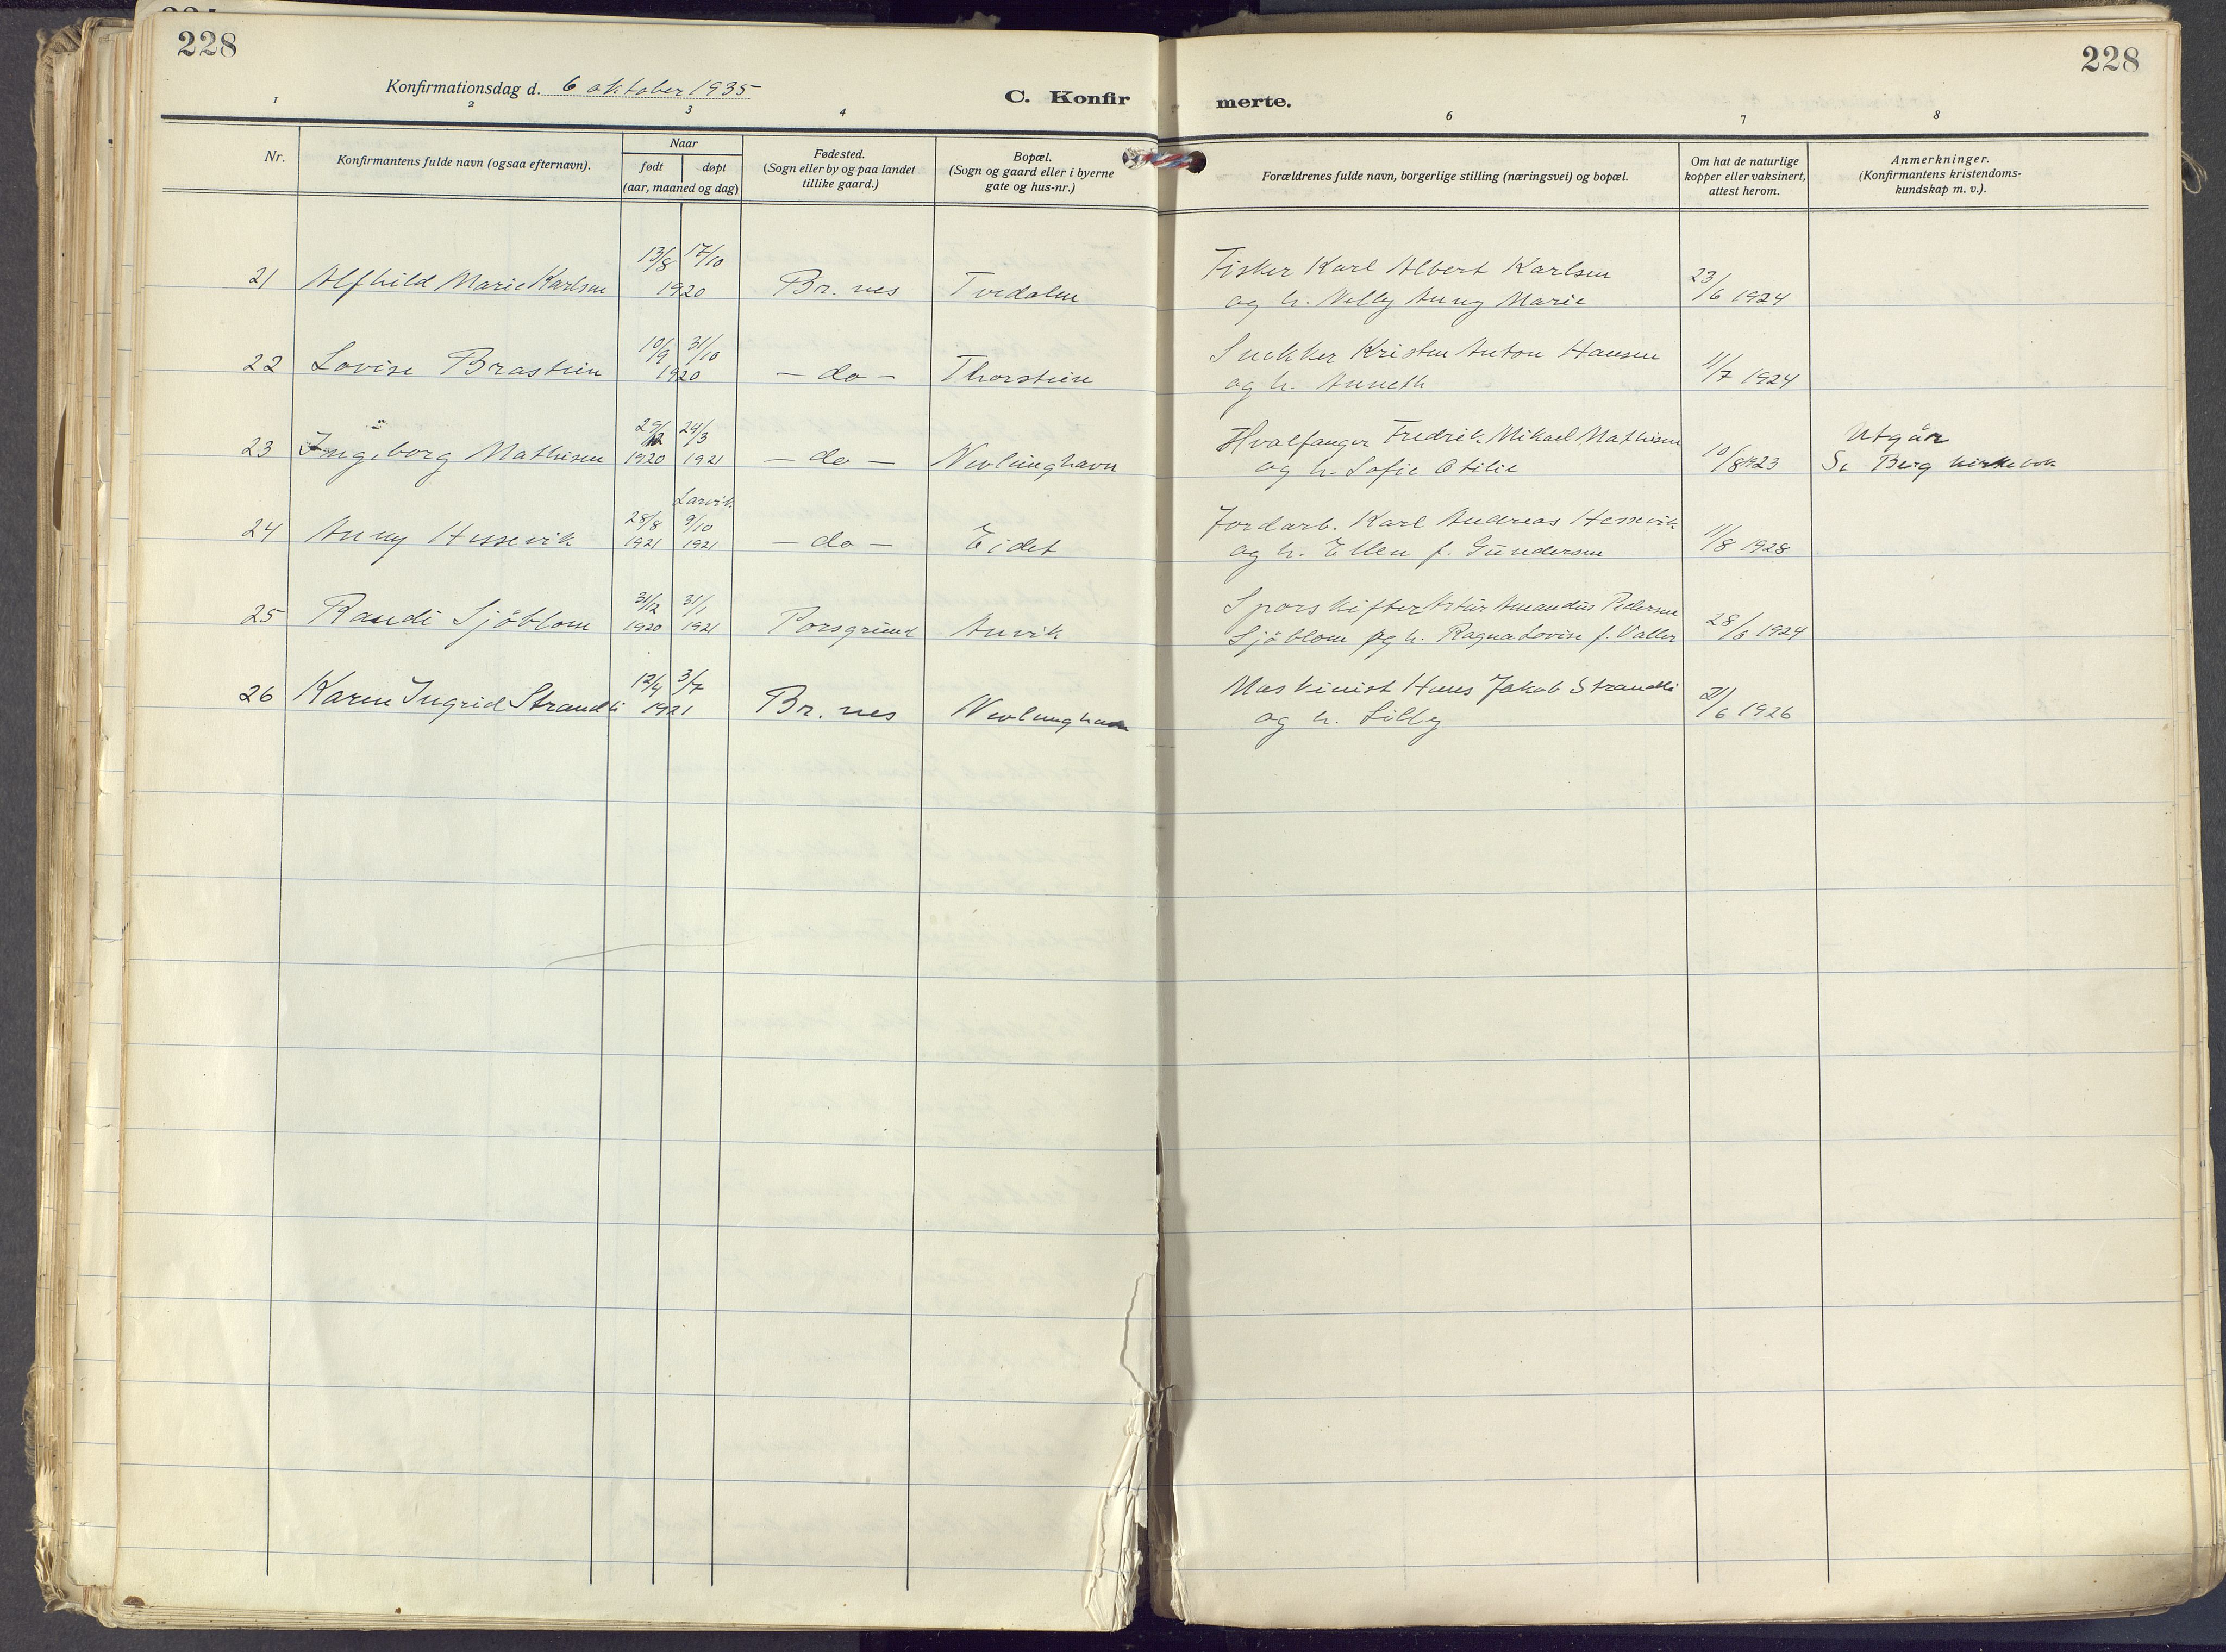 228
228
Konfirmationsdag d. 6 oktober 1935
C. Konfir
merte.
1 2 3 4 6 7 8
Nr.
Konfirmantens fulde navn (ogsaa efternavn).
Naar
født døpt
(aar, maaned og dag)
Fødested.
(Sogn eller by og paa landet
tillike gaard.)
Bopæl.
(Sogn og gaard eller i byerne
gate og hus-nr.)
Forældrenes fulde navn, borgerlige stilling (næringsvei) og bopæl.
Om hat de naturlige
kopper eller vaksinert,
attest herom.
Anmerkninger.
(Konfirmantens kristendoms-
kundskap m. v.).
13/8 17/10 Fisker Karl Albert Karlsen
21 Alfhild Marie Karlsen 1920 Br. nes Tvedalen og h. Nelly Anny Marie 23/6 1924
10/9 31/10 Snekker Kristen Anton Hansen
22 Lovise Brastein 1920 - do - Thorstein og h. Anneth 11/7 1924
29/12 24/3 Hvalfanger Fredrik Mikael Mathisen Utgår
23 Ingeborg Mathisen 1920 1921 - do - Nevlunghavn og h. Sofie Otilie 10/8 1923 Se Berg kirkebok
Larvik
28/8 9/10 Jordarb. Karl Andreas Hessevik
24 Anny Hessevik 1921 1921 - do - Eidet og h. Ellen f. Gundersen 11/8 1928
31/12 31/1 Sporskifter Artur Amandus Pedersen
25 Randi Sjöblom 1920 1921 Porsgrund Anvik Sjöblom og h. Ragna Lovise f. Valler 28/6 1924
12/4 3/7 Maskinist Hans Jakob Strandli
26 Karen Ingrid Strandli 1921 Br. nes Nevlunghavn og h. Lilly 21/6 1926